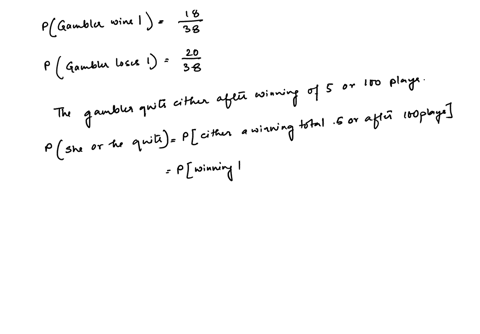 P(Gambler wins 1) = 18/38
P(Gambler loses 1) = 20/38
The gambler quits either after winning of 5 or 100 plays.
P(she or he quits) = P[either a winning total .5 or after 100 plays]
= P[winning 1